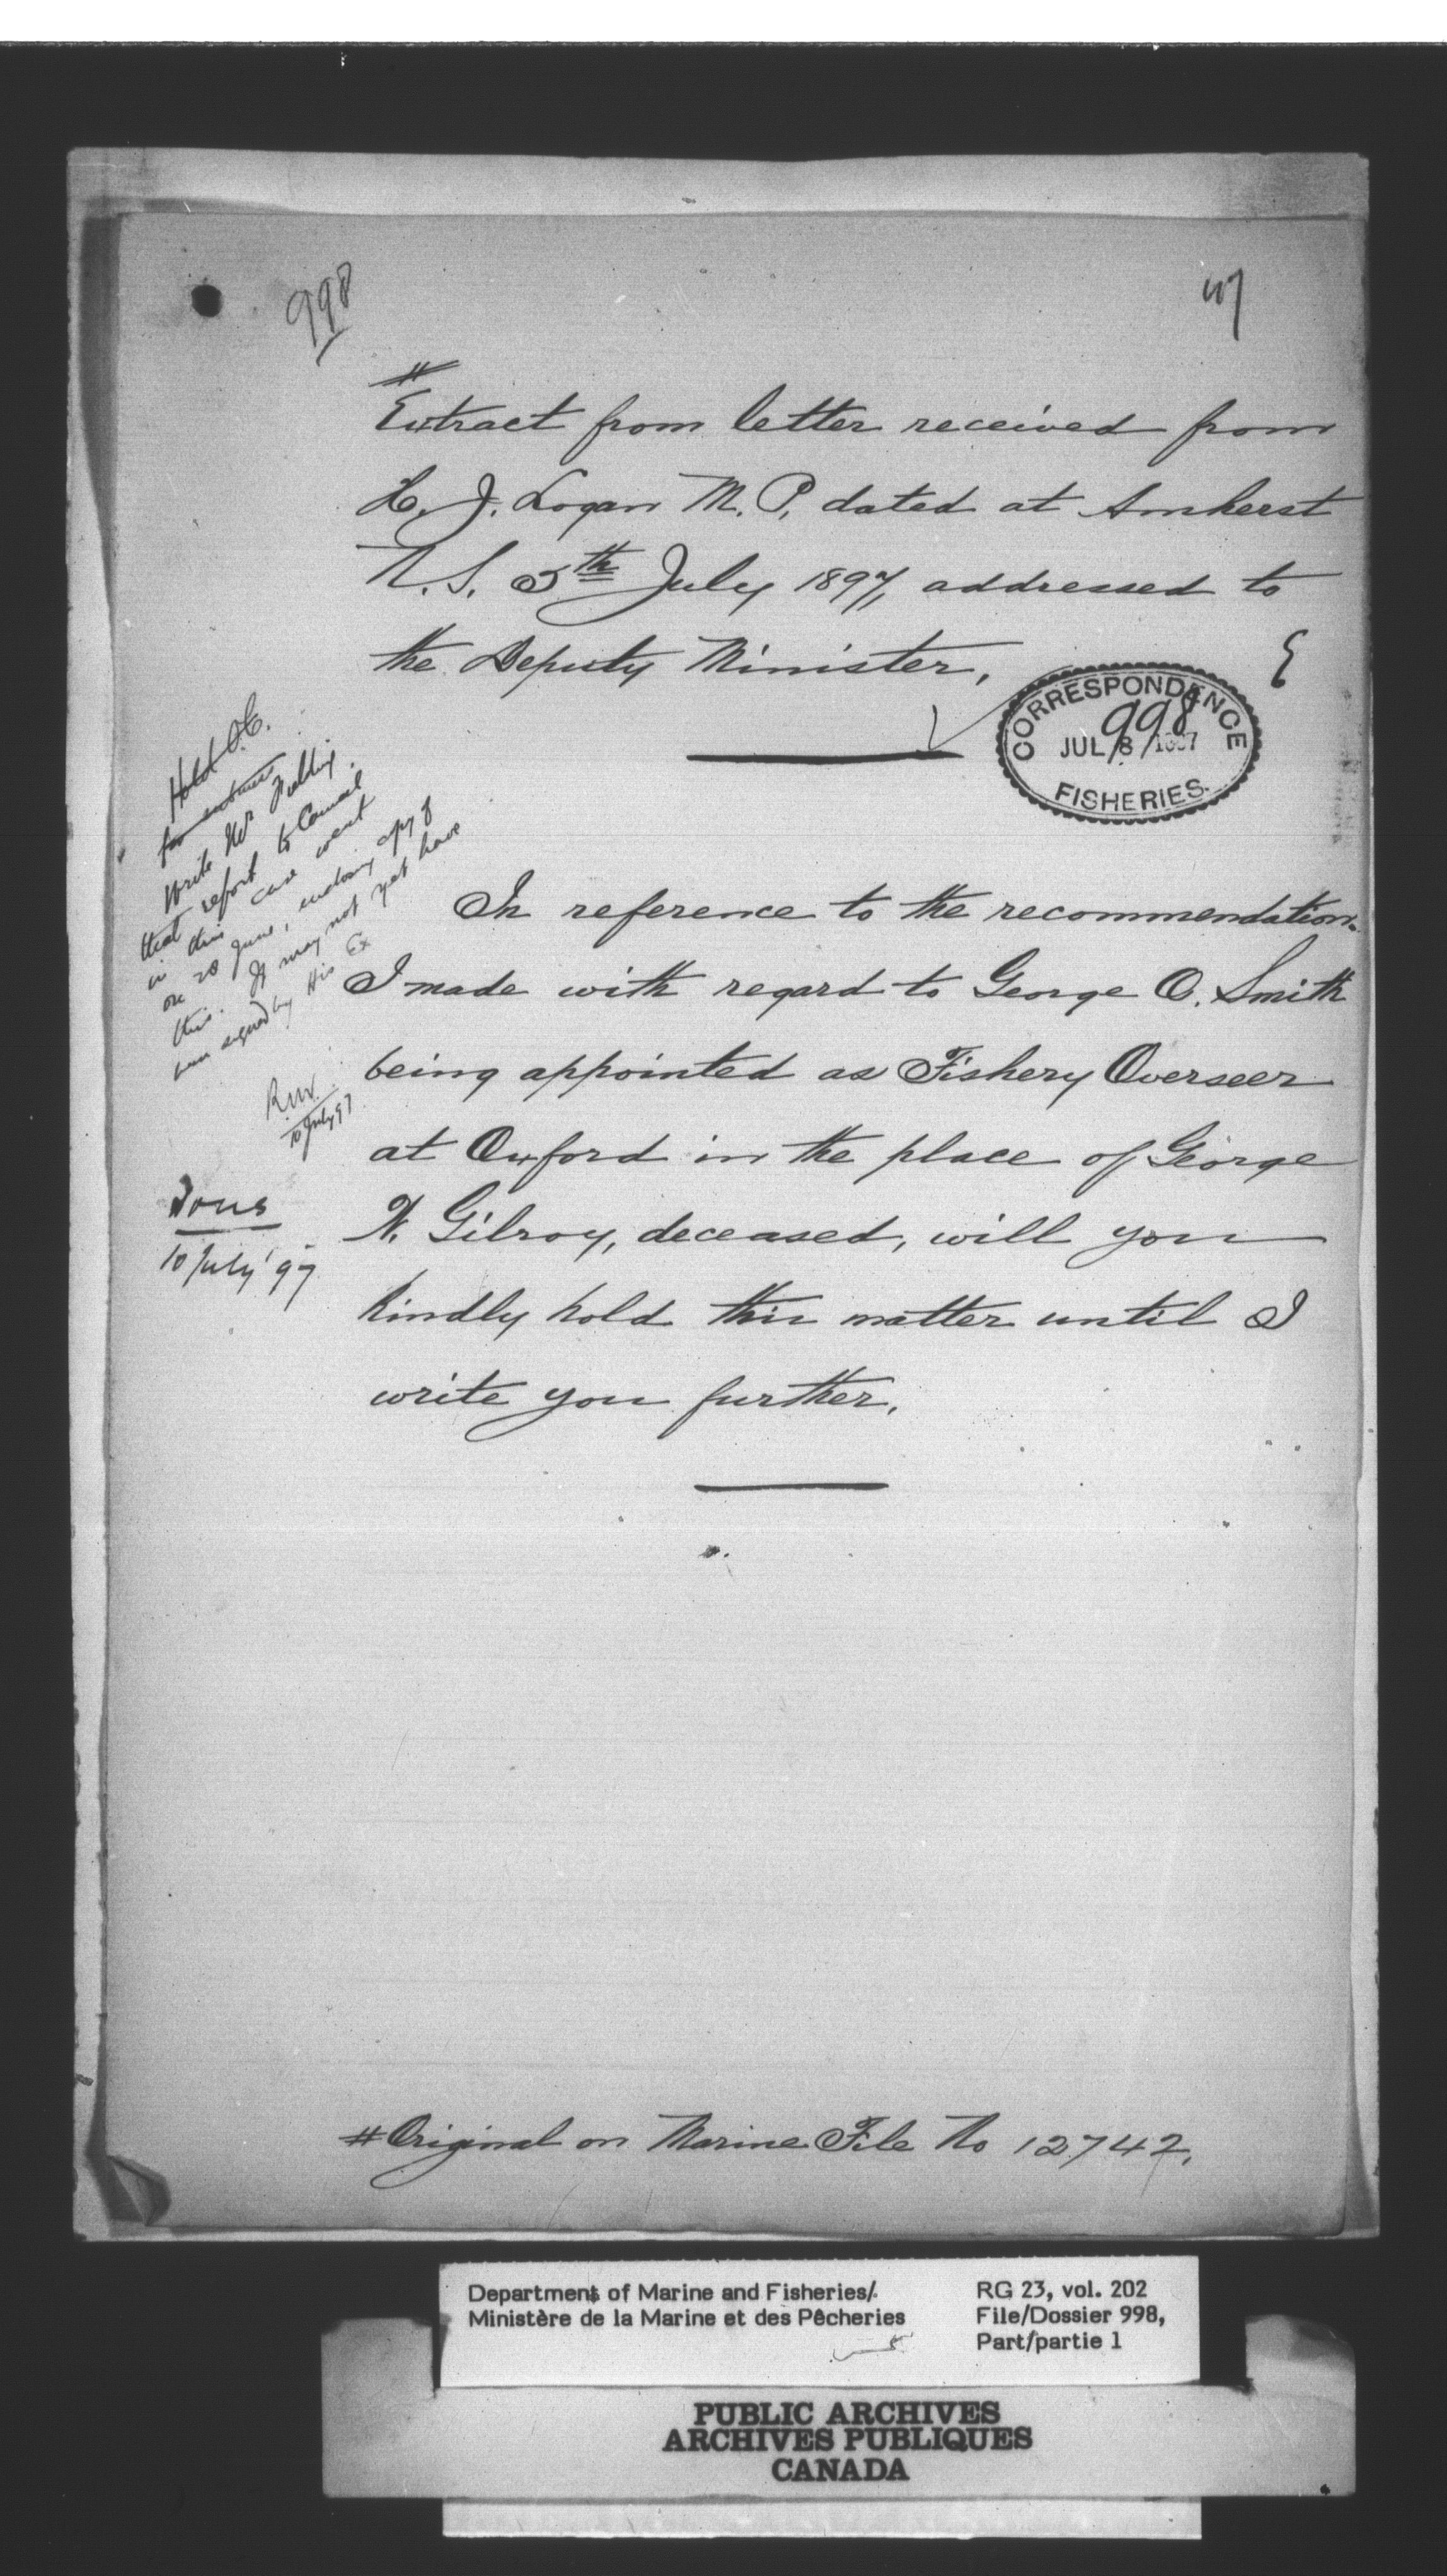 998
47
#
Extract from letter received from
H. J. Logan M. P. dated at Amherst
N. S. 5th July 1897, addressed to
the Deputy Minister.
CORRESPONDENCE
998
JUL 8 1897
FISHERIES.
Hold O.C.
for
Write Mr Fielding
that report to Council
in this case went
on 28 June, enclosing copy of
this. It may not yet have
been signed by His Ex
10 July 97
Done
10 July '97
In reference to the recommendation
I made with regard to George O. Smith
being appointed as Fishery Overseer
at Oxford in the place of George
W. Gilroy, deceased, will you
kindly hold this matter until I
write you further.
# Original on Marine File No 12742.
Department of Marine and Fisheries/
Ministère de la Marine et des Pêcheries
RG 23, vol. 202
File/Dossier 998,
Part/partie 1
PUBLIC ARCHIVES
ARCHIVES PUBLIQUES
CANADA